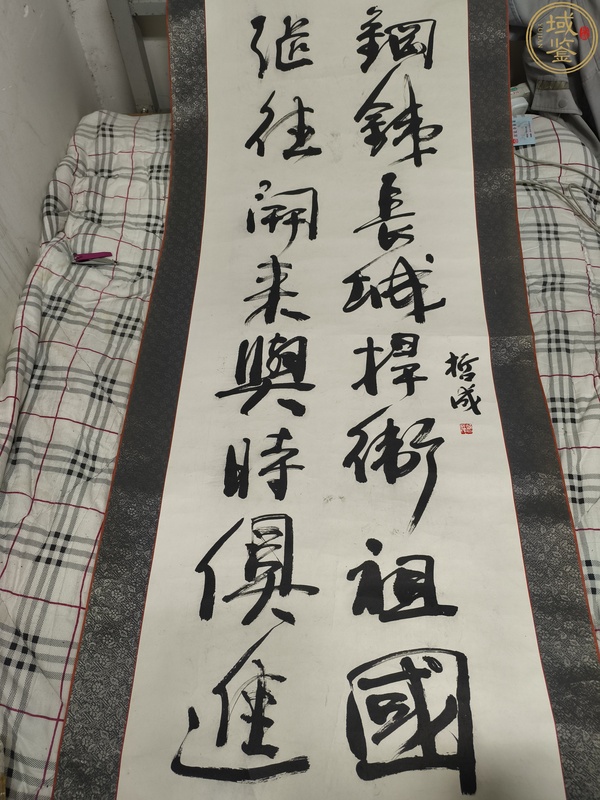 鋼鉄長城捍衛祖國
継往開来與時俱進
哲成
域鉴